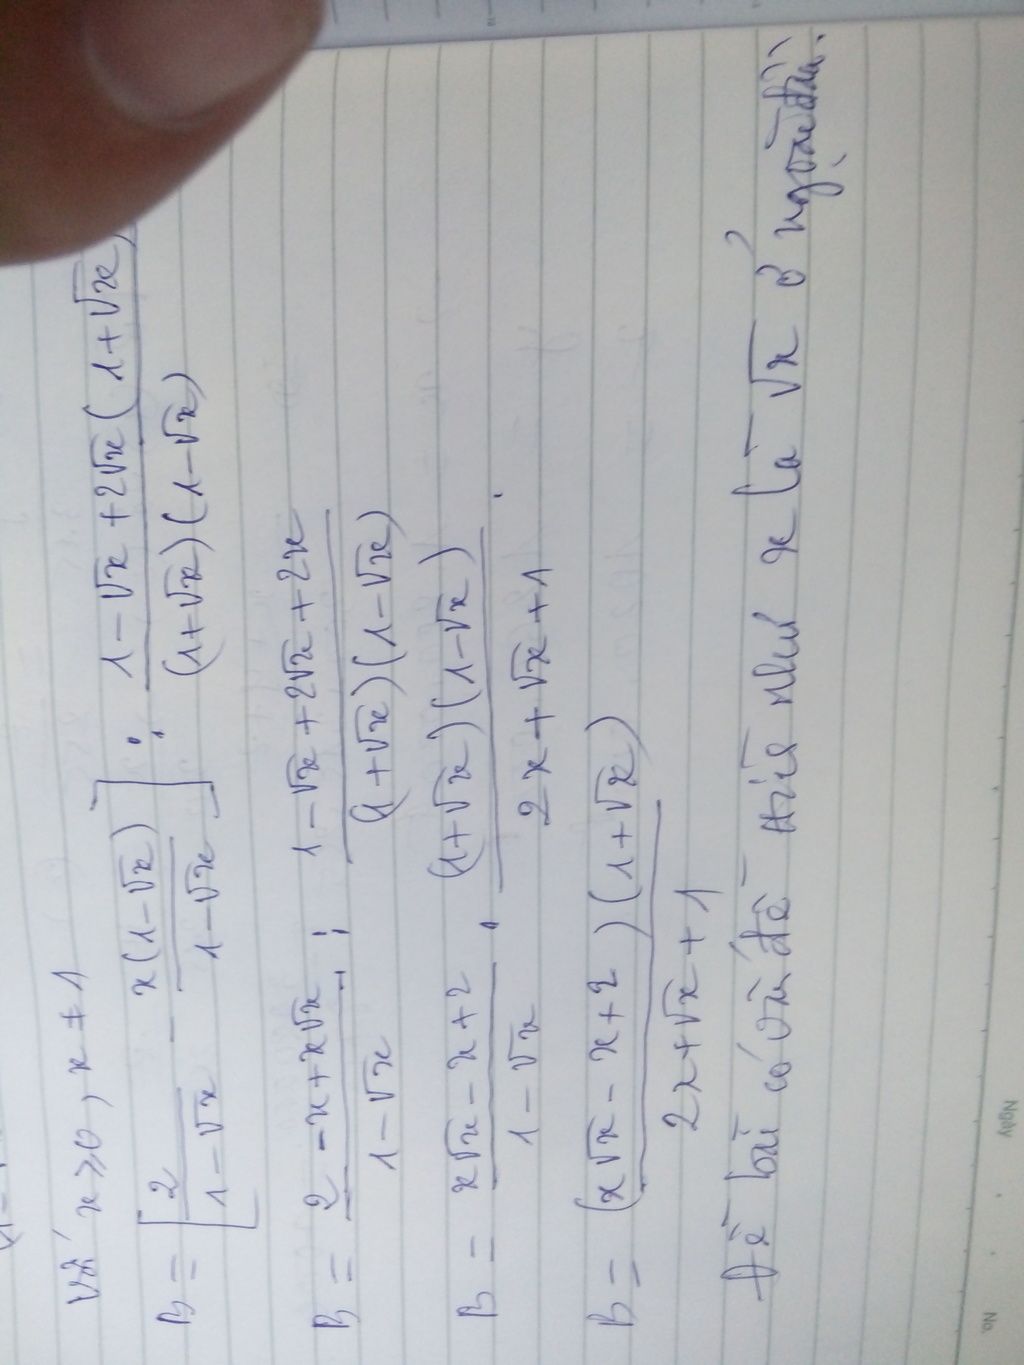 Với x ⩾ 0, x ≠ 1
B = [ 2/(1-√x) - x(1-√x)/(1-√x) ] : (1-√x+2√x(1+√x))/((1+√x)(1-√x))
B = (2-x+x√x)/(1-√x) : (1-√x+2√x+2x)/((1+√x)(1-√x))
B = (x√x-x+2)/(1-√x) . ((1+√x)(1-√x))/(2x+√x+1) .
B = ((x√x-x+2)(1+√x))/(2x+√x+1)
Đề bài có vấn đề hình như x là √x ở ngoặc đầu.
Ngày
No.